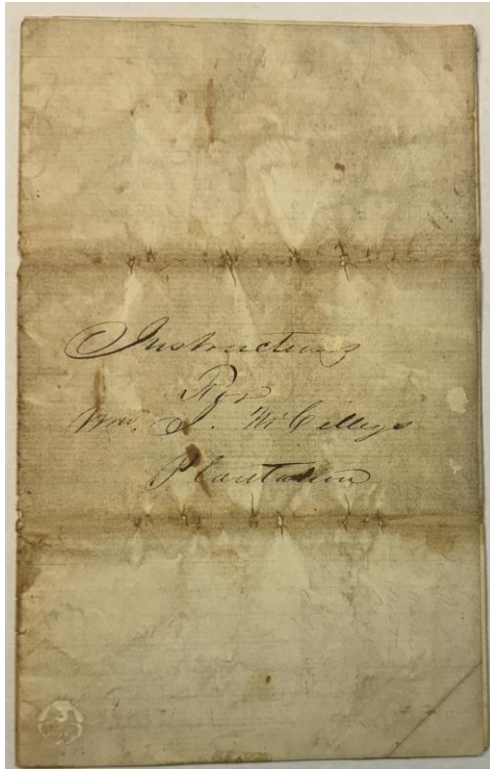 Instructions
For
Wm. J. McCelleys
Plantation